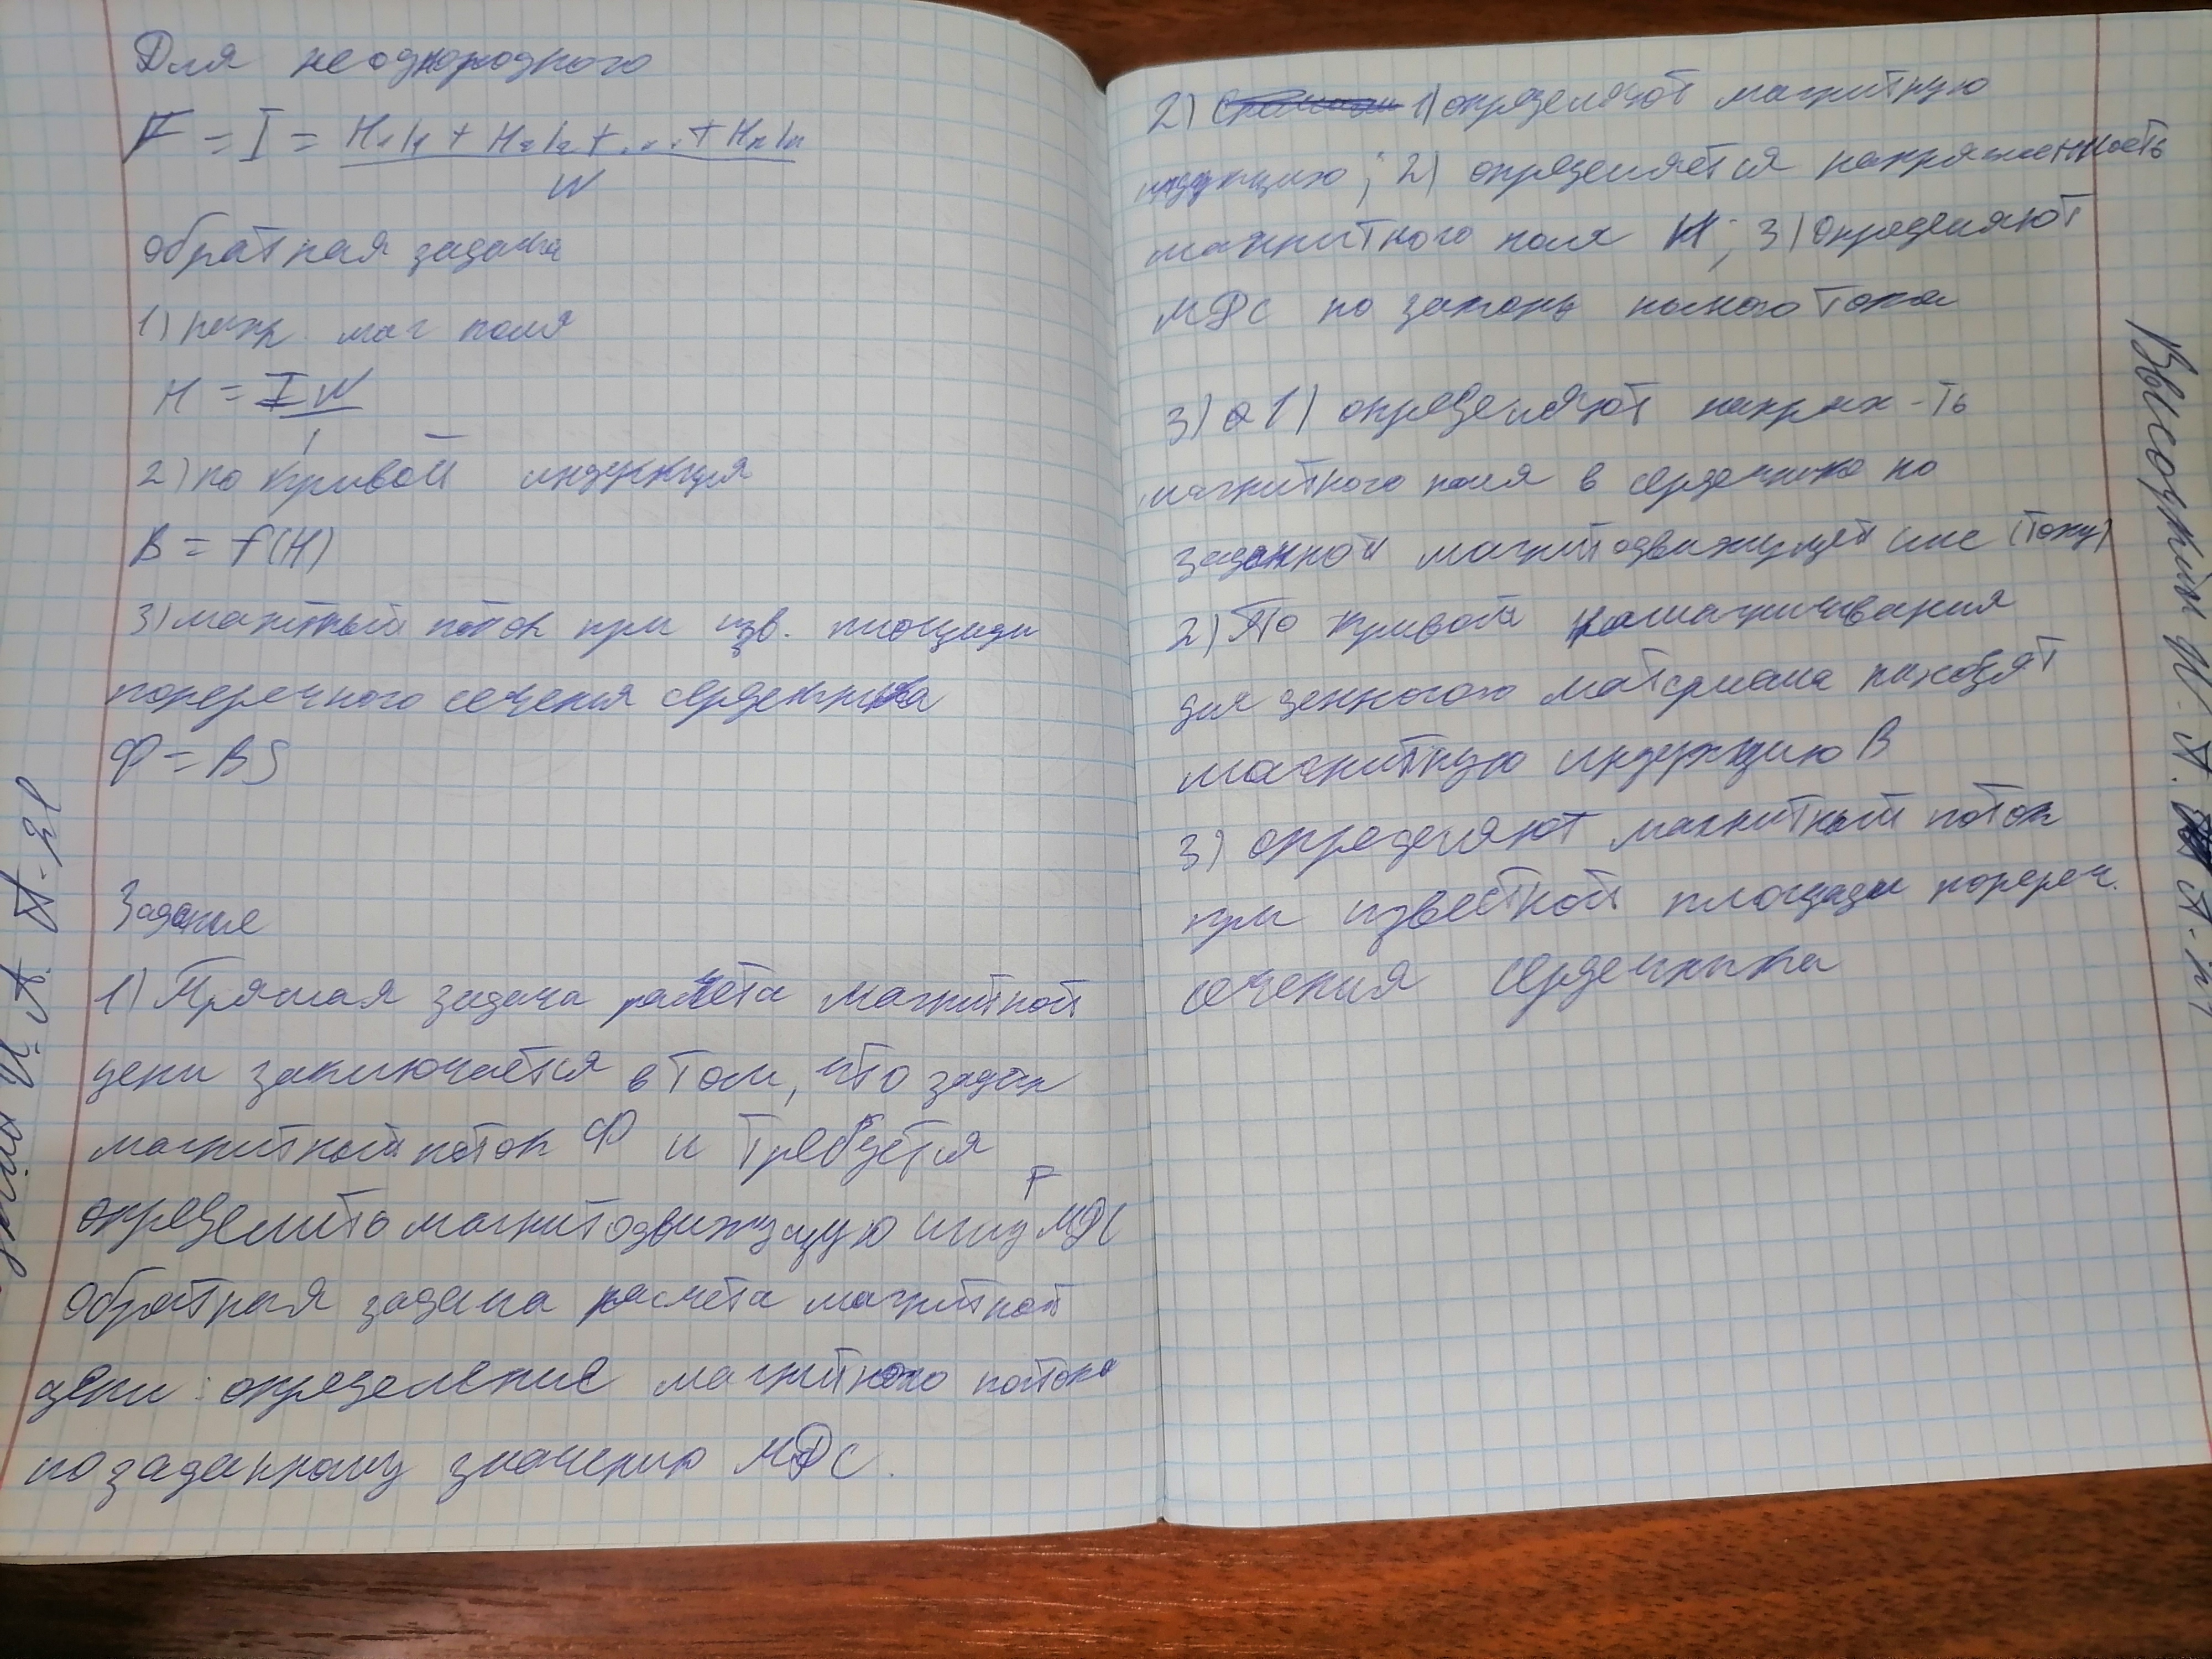 Для неоднородного
F = I = H₁l₁ + H₂l₂ + ... + Hₙlₙ
W
Обратная задача
1) напр. маг поля
H = IW
l
2) по кривой индукция
B = f(H)
3) магнтный поток при изв. площади
поперечного сечения сердечника
Ф = BS
Задание
1) Прямая задача расчёта магнитной
цепи заключается в том, что задан
магнитный поток Ф и требуется
F
определить магнитодвижущую силу МДС
Обратная задача расчета магнитной
цепи: определение магнитного потока
по заданному значению МДС.
2) 1) определяют магнитную
индукцию; 2) определяется напряженность
магнитного поля H; 3) Определяют
МДС по закону полного тока
3) 1) определяют напряж-ть
магнитного поля в сердечнике по
заданной магнитодвижущей силе (току)
2) По кривой намагничивания
для данного материала находят
магнитную индукцию B
3) определяют магнитный поток
при известной площади попереч.
сечения сердечника